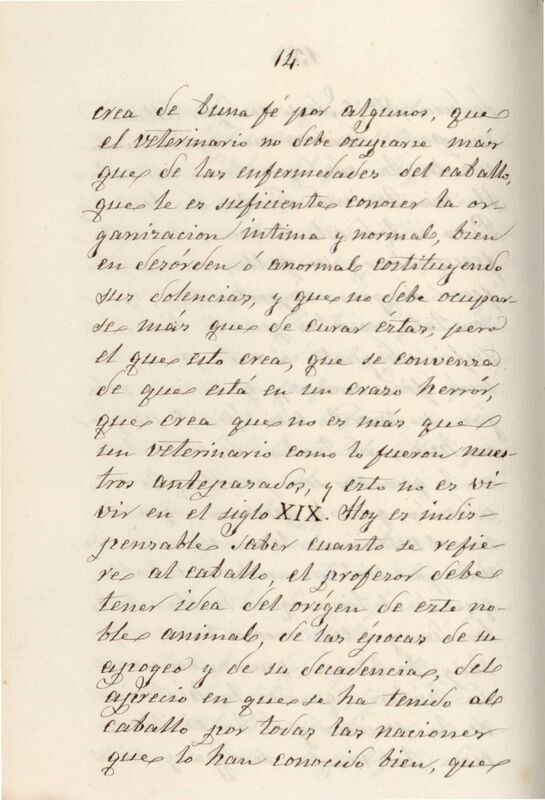 14.
crea de buna fé por algunos, que
el veterinario no debe ocuparse más
que de las enfermedades del caballo,
que le es suficiente conocer la or-
ganizacion íntima y normal, bien
en desórden ó anormal costituyendo
sus dolencias, y que no debe ocupar-
se más que de curar éstas; pero
el que esto crea, que se convenza
de que está en un craso herrór,
que crea que no es más que
un veterinario como lo fueron nues-
tros antepasados, y esto no es vi-
vir en el siglo XIX. Hoy es indis-
pensable saber cuanto se refie-
re al caballo, el profesor debe
tener idea del orígen de este no-
ble animal, de las épocas de su
apogeo y de su decadencia, del
aprecio en que se ha tenido al
caballo por todas las naciones
que lo han conocido bien, que